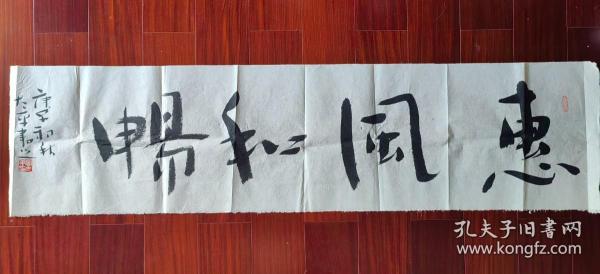 惠风和暢
庚子初秋
书
孔夫子旧书网
www.kongfz.com